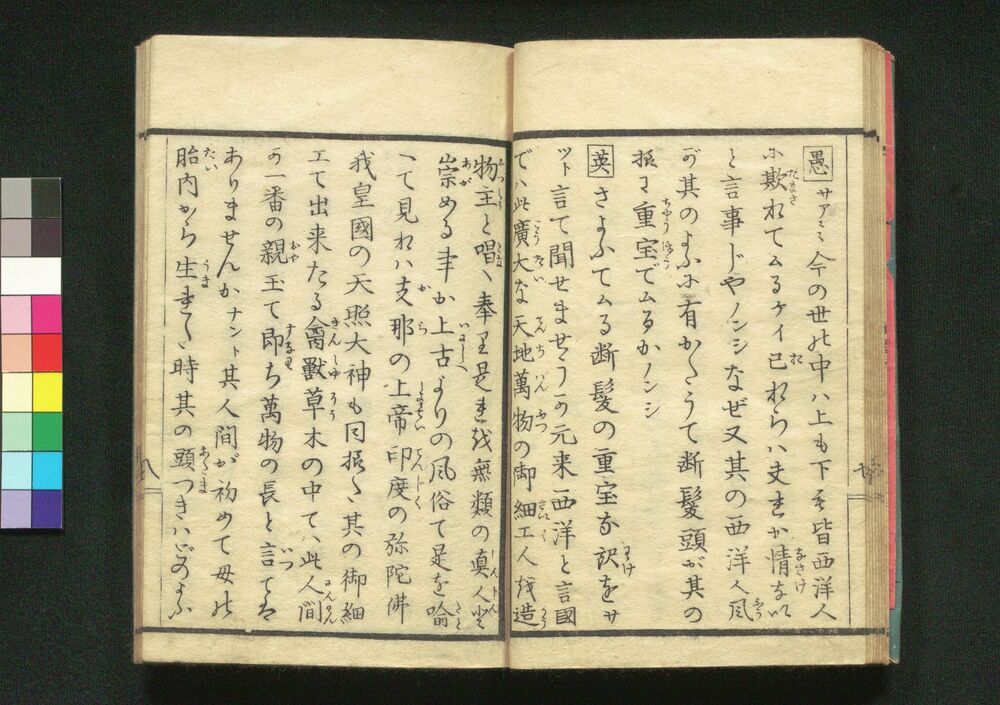 愚 サア〳〵今の世の中ハ上も下も皆西洋人
に欺れてムるケイ已れらハ夫れか情ない
と言事じやノンシなぜ又其の西洋人風
が其のよふに有がたうて断髪頭が其の
様マ重宝でムるかノンシ
英 さよふてムる断髪の重宝な訳をサ
ツト言て聞せませうの元来西洋と言國
でハ此廣大な天地萬物の御細工人を造
物主と唱へ奉り是れを無類の真人と
崇める事か上古よりの風俗て是を喩
へて見れハ支那の上帝印度の弥陀佛
我皇國の天照大神も同様て其の御細
工て出来たる禽獣草木の中て此人間
か一番の親玉て即ち萬物の長と言ても
ありませんかナント其人間が初めて母の
胎内から生れた時其の頭つきハどのよふ
八